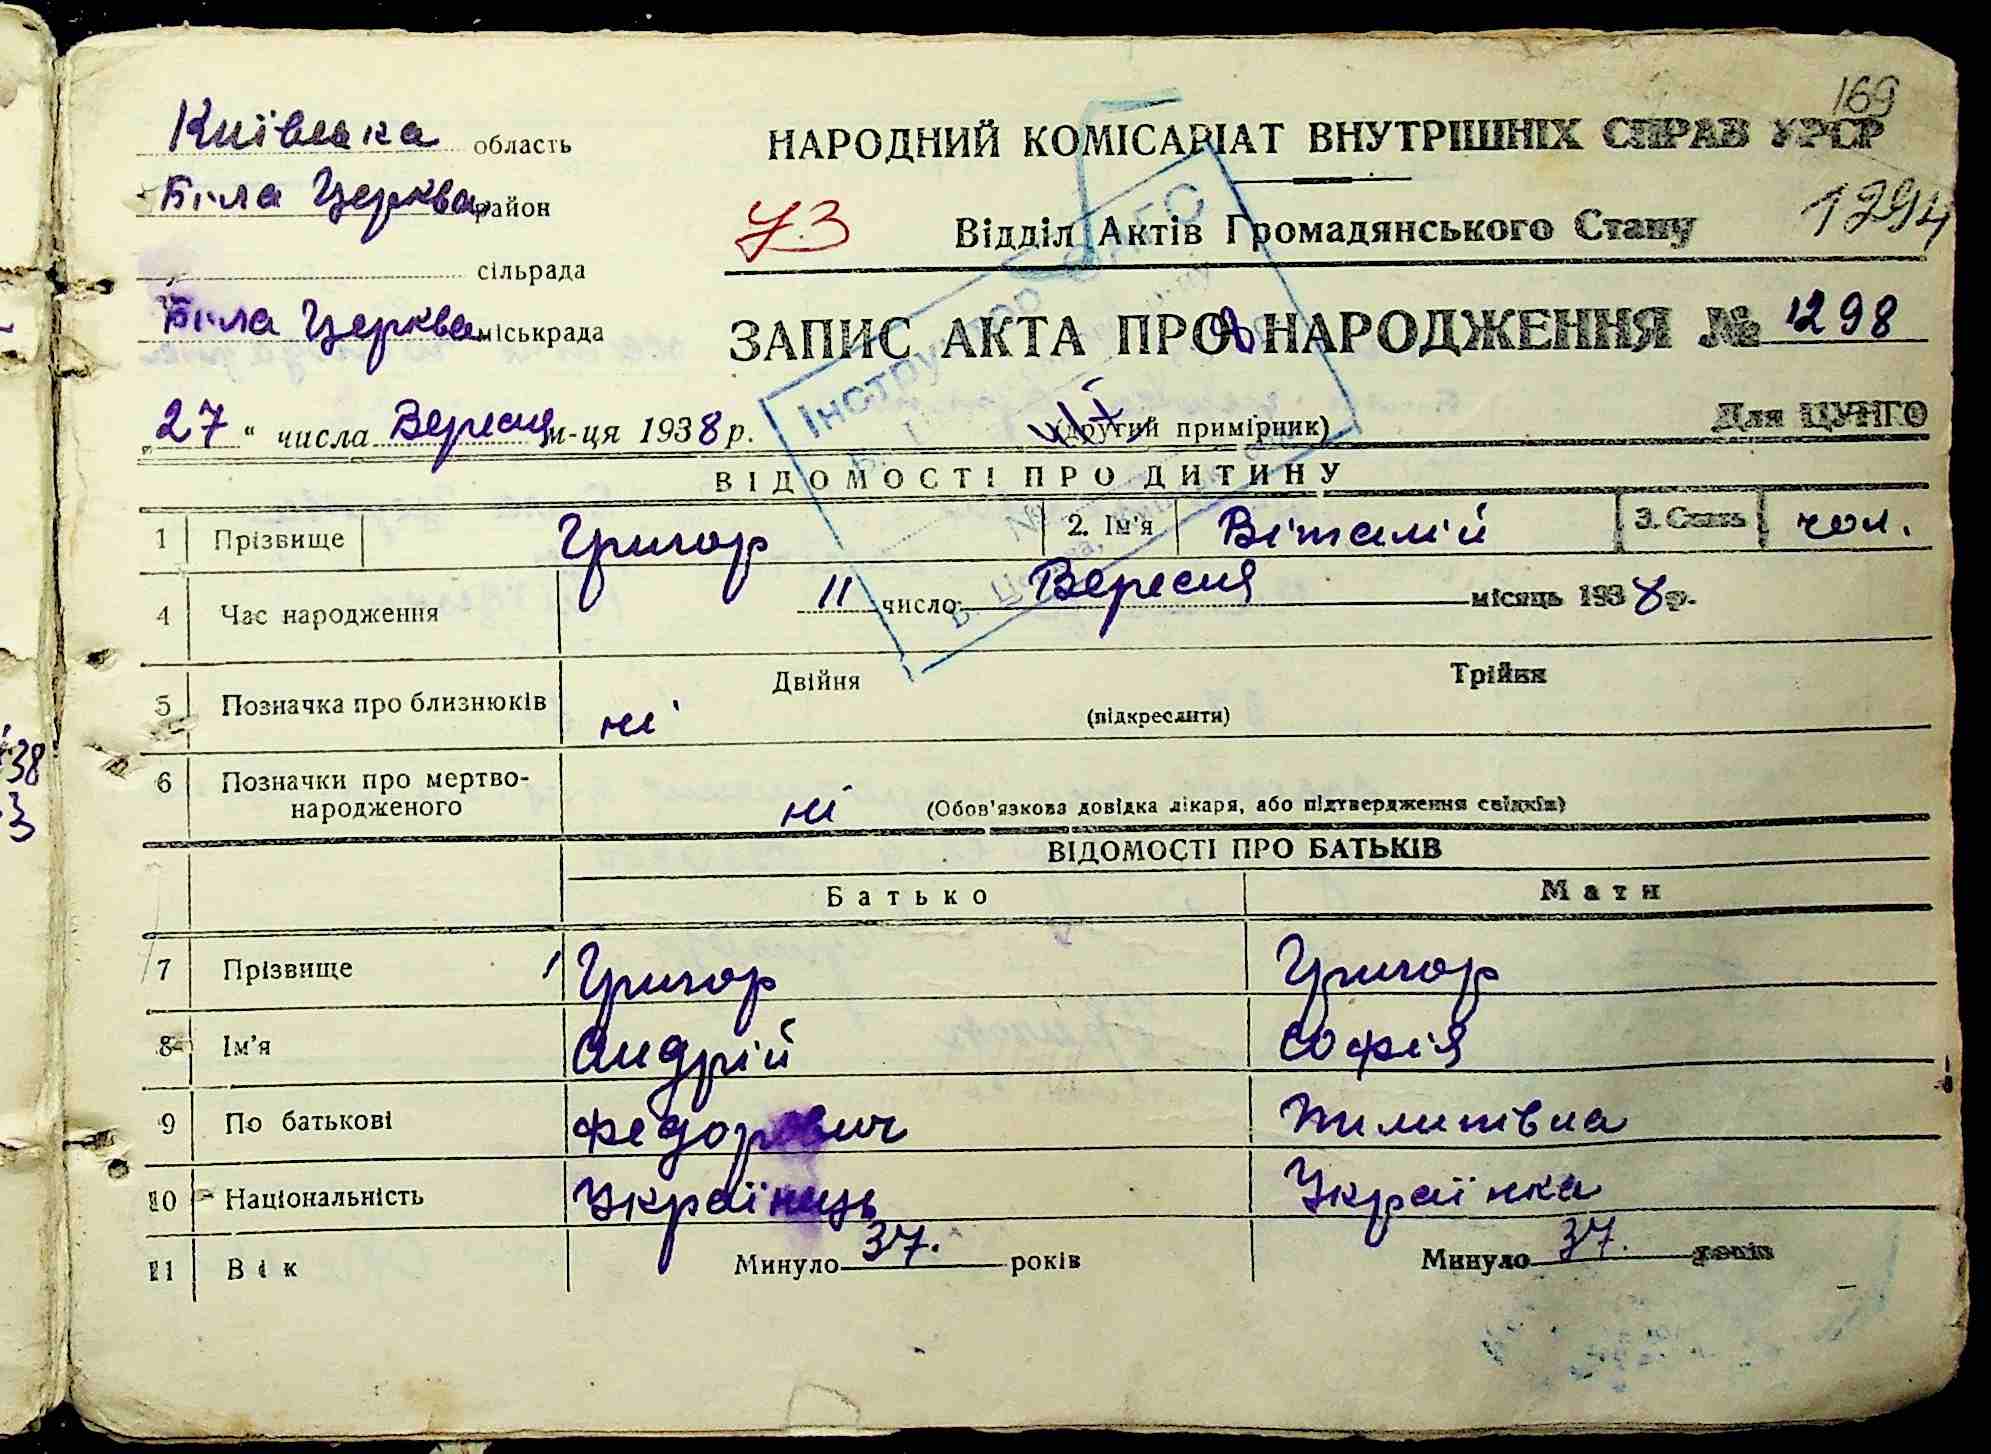 169
Київська область
НАРОДНИЙ КОМІСАРІАТ ВНУТРІШНІХ СПРАВ УРСР
Біла Церква район
УЗ
Відділ Актів Громадянського Стану
1294
сільрада
Біла Церква міськрада
ЗАПИС АКТА ПРО НАРОДЖЕННЯ № 1298
„27“ числа Вересня м-ця 1938 р.
(другий примірник)
Для ЦУНГО
Інструктор
ВІДОМОСТІ ПРО ДИТИНУ
1 Прізвище Григор 2. Ім'я Віталій 3. Стать чол.
4 Час народження 11 число Вересня місяць 1938 р.
5 Позначка про близнюків ні Двійня Трійня
(підкреслити)
6 Позначки про мертво-
народженого ні (Обов'язкова довідка лікаря, або підтвердження свідків)
ВІДОМОСТІ ПРО БАТЬКІВ
Батько Мати
7 Прізвище Григор Григор
8 Ім'я Андрій Софія
9 По батькові Федорович Пилипівна
10 Національність Українець Українка
11 Вік Минуло 37. років Минуло 37. років
38
3